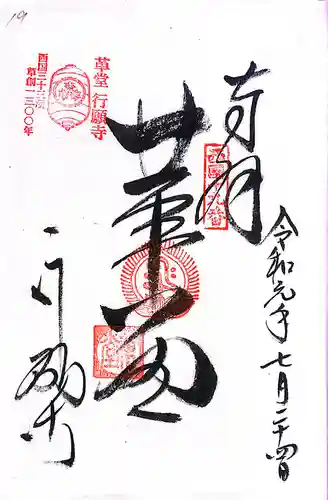 奉拝
令和元年七月二十四日
革堂
行願寺
革堂 行願寺
西国三十三所
草創一三〇〇年